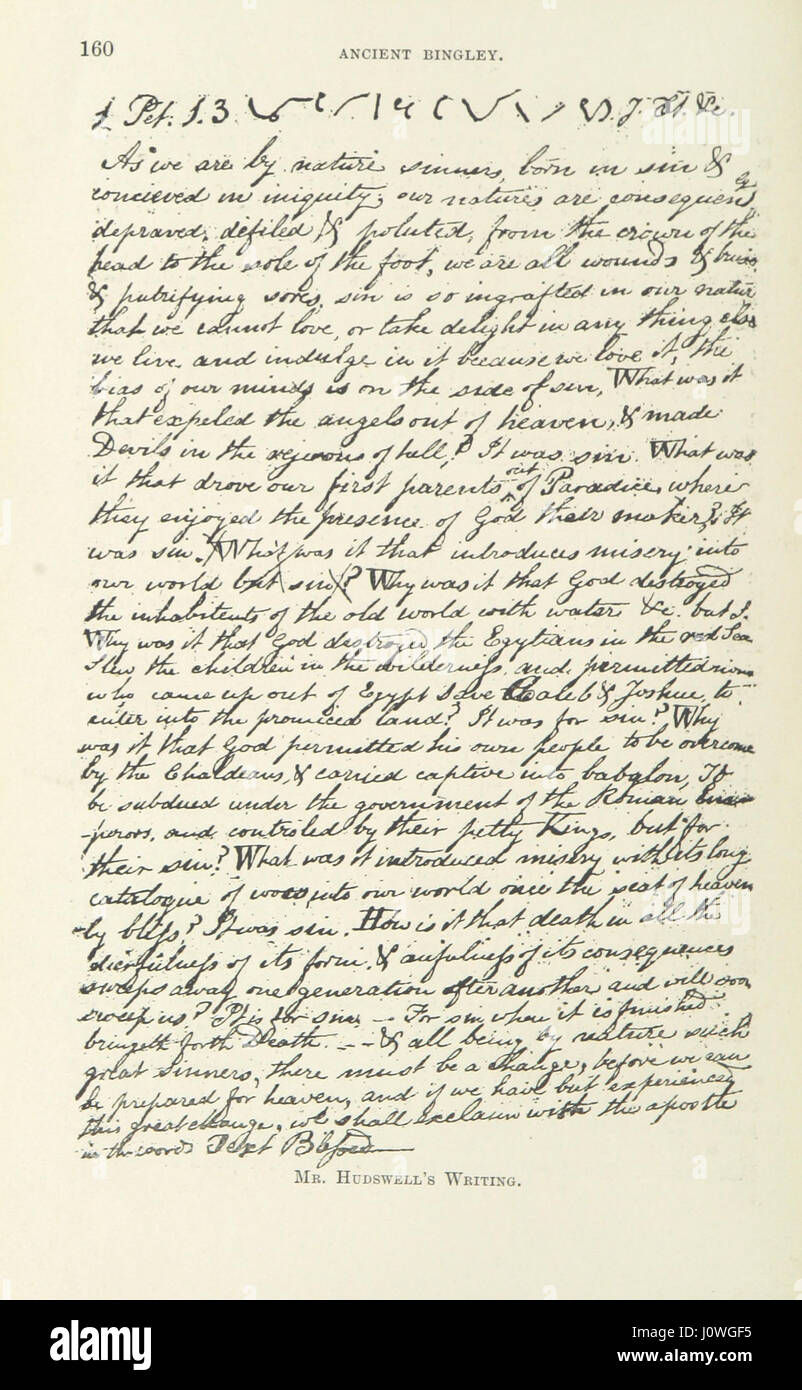 160
ANCIENT BINGLEY.
1 Pet. 1.3 J. Ct. &c.
As we are by nature sinners, born in sin &
concieved in iniquity; our natures are consequen
depraved, defiled & poluted, from the crown of the
head to the sole of the foot, we are all wounds &
& putrifying sores, sin is so ingrafted in our natur
that we cannot love, or take delight in any thing else
we live and indulge in it because we love it, the
bias of our minds is on the side of sin, What was it
that expeled the angels out of heaven, & made
Devils in the of hell? It was sin. What was
it that drove our first parents out of Paradice, where
they enjoyed the presence of God their maker? It
was sin. What was it that introduces misery into
our world but sin? Why was it that God destroyed
the inhabitents of the old world with water &c. but S.
Why was it that God destroyed the Egytians in the red Sea
Slew the children in the wilderness, and permitted
who came up out of Egypt save Caleb & Joshua, to
enter into the promiced land? It was for sin? Why
was it that God permitted his own people to be overcome
by the Chaldeans, & carried captive into babylon, To
be subdued under the government of the Roman Em
-perors, and controled by their petty Kings, but for
their sin? What was it introduced misery with its long
catalogue of woes, into our world once the seat of heaven
-ly bliss? It was sin. How is it that death in all the
of its form, & awfulness of its consequences
sweeps away one generation after another and will soon
sweep us? It is for sin — For sin when it is finished
bringeth forth Death — & all being by nature such
great sinners, there must be a change, before we can
be prepared for heaven, and if we have but experienced
this great change, we shall exclaim with the apostle
in the words Text Blessed
MR. HUDSWELL'S WRITING.
alamy
Image ID: J0WGF5
www.alamy.com